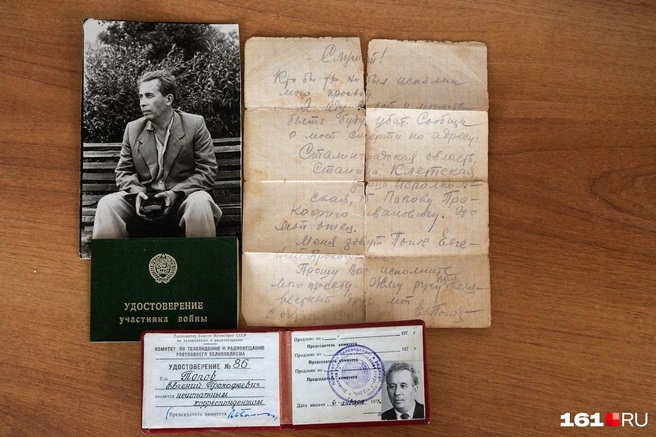 Слушай!
Кто бы ты ни был исполни
мою просьбу.
Я иду в бой и может
быть буду убит. Сообщи
о моей смерти по адресу:
Сталинградская область,
Станица Клетская
улица Исполком-
ская, Попову Про-
кофию Ивановичу. Это
мой отец.
Меня зовут Попов Евге-
ний
Прошу Вас исполнить
мою просьбу. Жму руку
друг мой Е. Попов
УДОСТОВЕРЕНИЕ
участника войны
КОМИТЕТ ПО ТЕЛЕВИДЕНИЮ И РАДИОВЕЩАНИЮ
РОСТОВСКОГО ОБЛИСПОЛКОМА
УДОСТОВЕРЕНИЕ № 86
Тов Попов
Евгений Прокофьевич
является нештатным
корреспондентом
Председатель комитета
Продлено по 197 г.
Председатель комитета
Продлено по 197 г.
Председатель комитета
Продлено по
Председатель комитета
Дата выдачи 6 января 197
161.RU